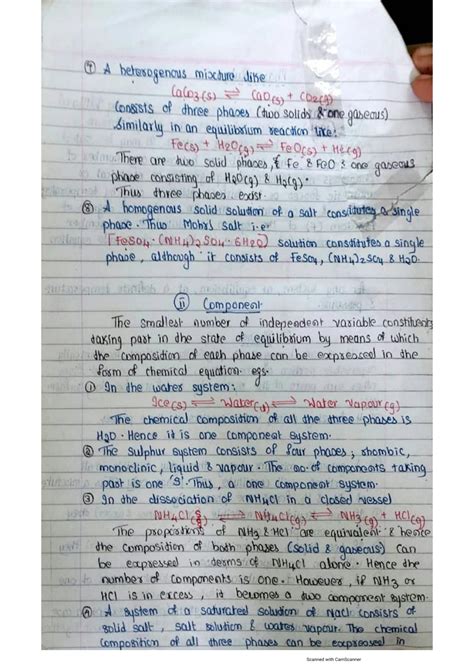 ⑦ A heterogenous mixture like
CaCO3(s) ⇌ CaO(s) + CO2(g)
Consists of three phases (two solids & one gaseous)
Similarly in an equilibrium reaction like:
Fe(s) + H2O(g) ⇌ FeO(s) + H2(g)
There are two solid phases, Fe & FeO & one gaseous
phase consisting of H2O(g) & H2(g).
Thus three phases exist.
⑧ A homogenous solid solution of a salt constitutes a single
phase. Thus Mohr's salt i.e
[FeSO4.(NH4)2SO4.6H2O] solution constitutes a single
phase, although it consists of FeSO4, (NH4)2SO4 & H2O.
(ii) Component
The smallest number of independent variable constituents
taking part in the state of equilibrium by means of which
the composition of each phase can be expressed in the
form of chemical equation. egs.
① In the water system:
Ice(s) ⇌ Water(l) ⇌ Water vapour(g)
The chemical composition of all the three phases is
H2O. Hence it is one component system.
② The sulphur system consists of four phases; rhombic,
monoclinic, liquid & vapour. The no. of components taking
past is one 'S'. Thus, a one component system.
③ In the dissociation of NH4Cl in a closed vessel
NH4Cl(s) ⇌ NH4Cl(g) ⇌ NH3(g) + HCl(g)
The proportions of NH3 & HCl are equivalent & hence
the composition of both phases (solid & gaseous) can
be expressed in terms of NH4Cl alone. Hence the
number of components is one. However, if NH3 or
HCl is in excess, it becomes a two component system.
A system of a saturated solution of NaCl consists of
solid salt, salt solution & water vapour. The chemical
composition of all three phases can be expressed in
Scanned with CamScanner